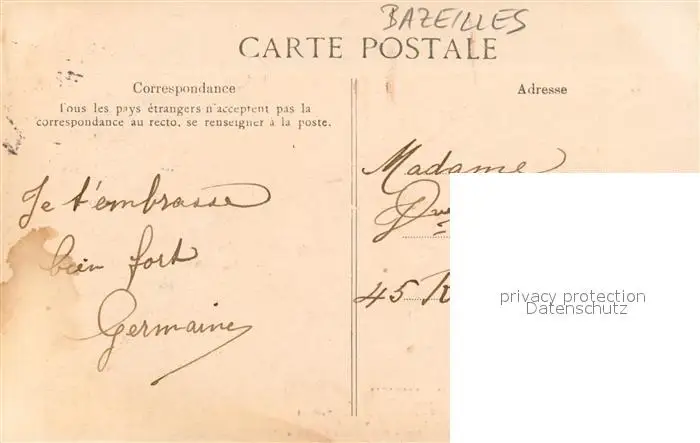 BAZEILLES
CARTE POSTALE
Correspondance
Tous les pays étrangers n'acceptent pas la
correspondance au recto, se renseigner à la poste.
Je t'embrasse
bien fort
Germaine
Adresse
Madame
45
privacy protection
Datenschutz